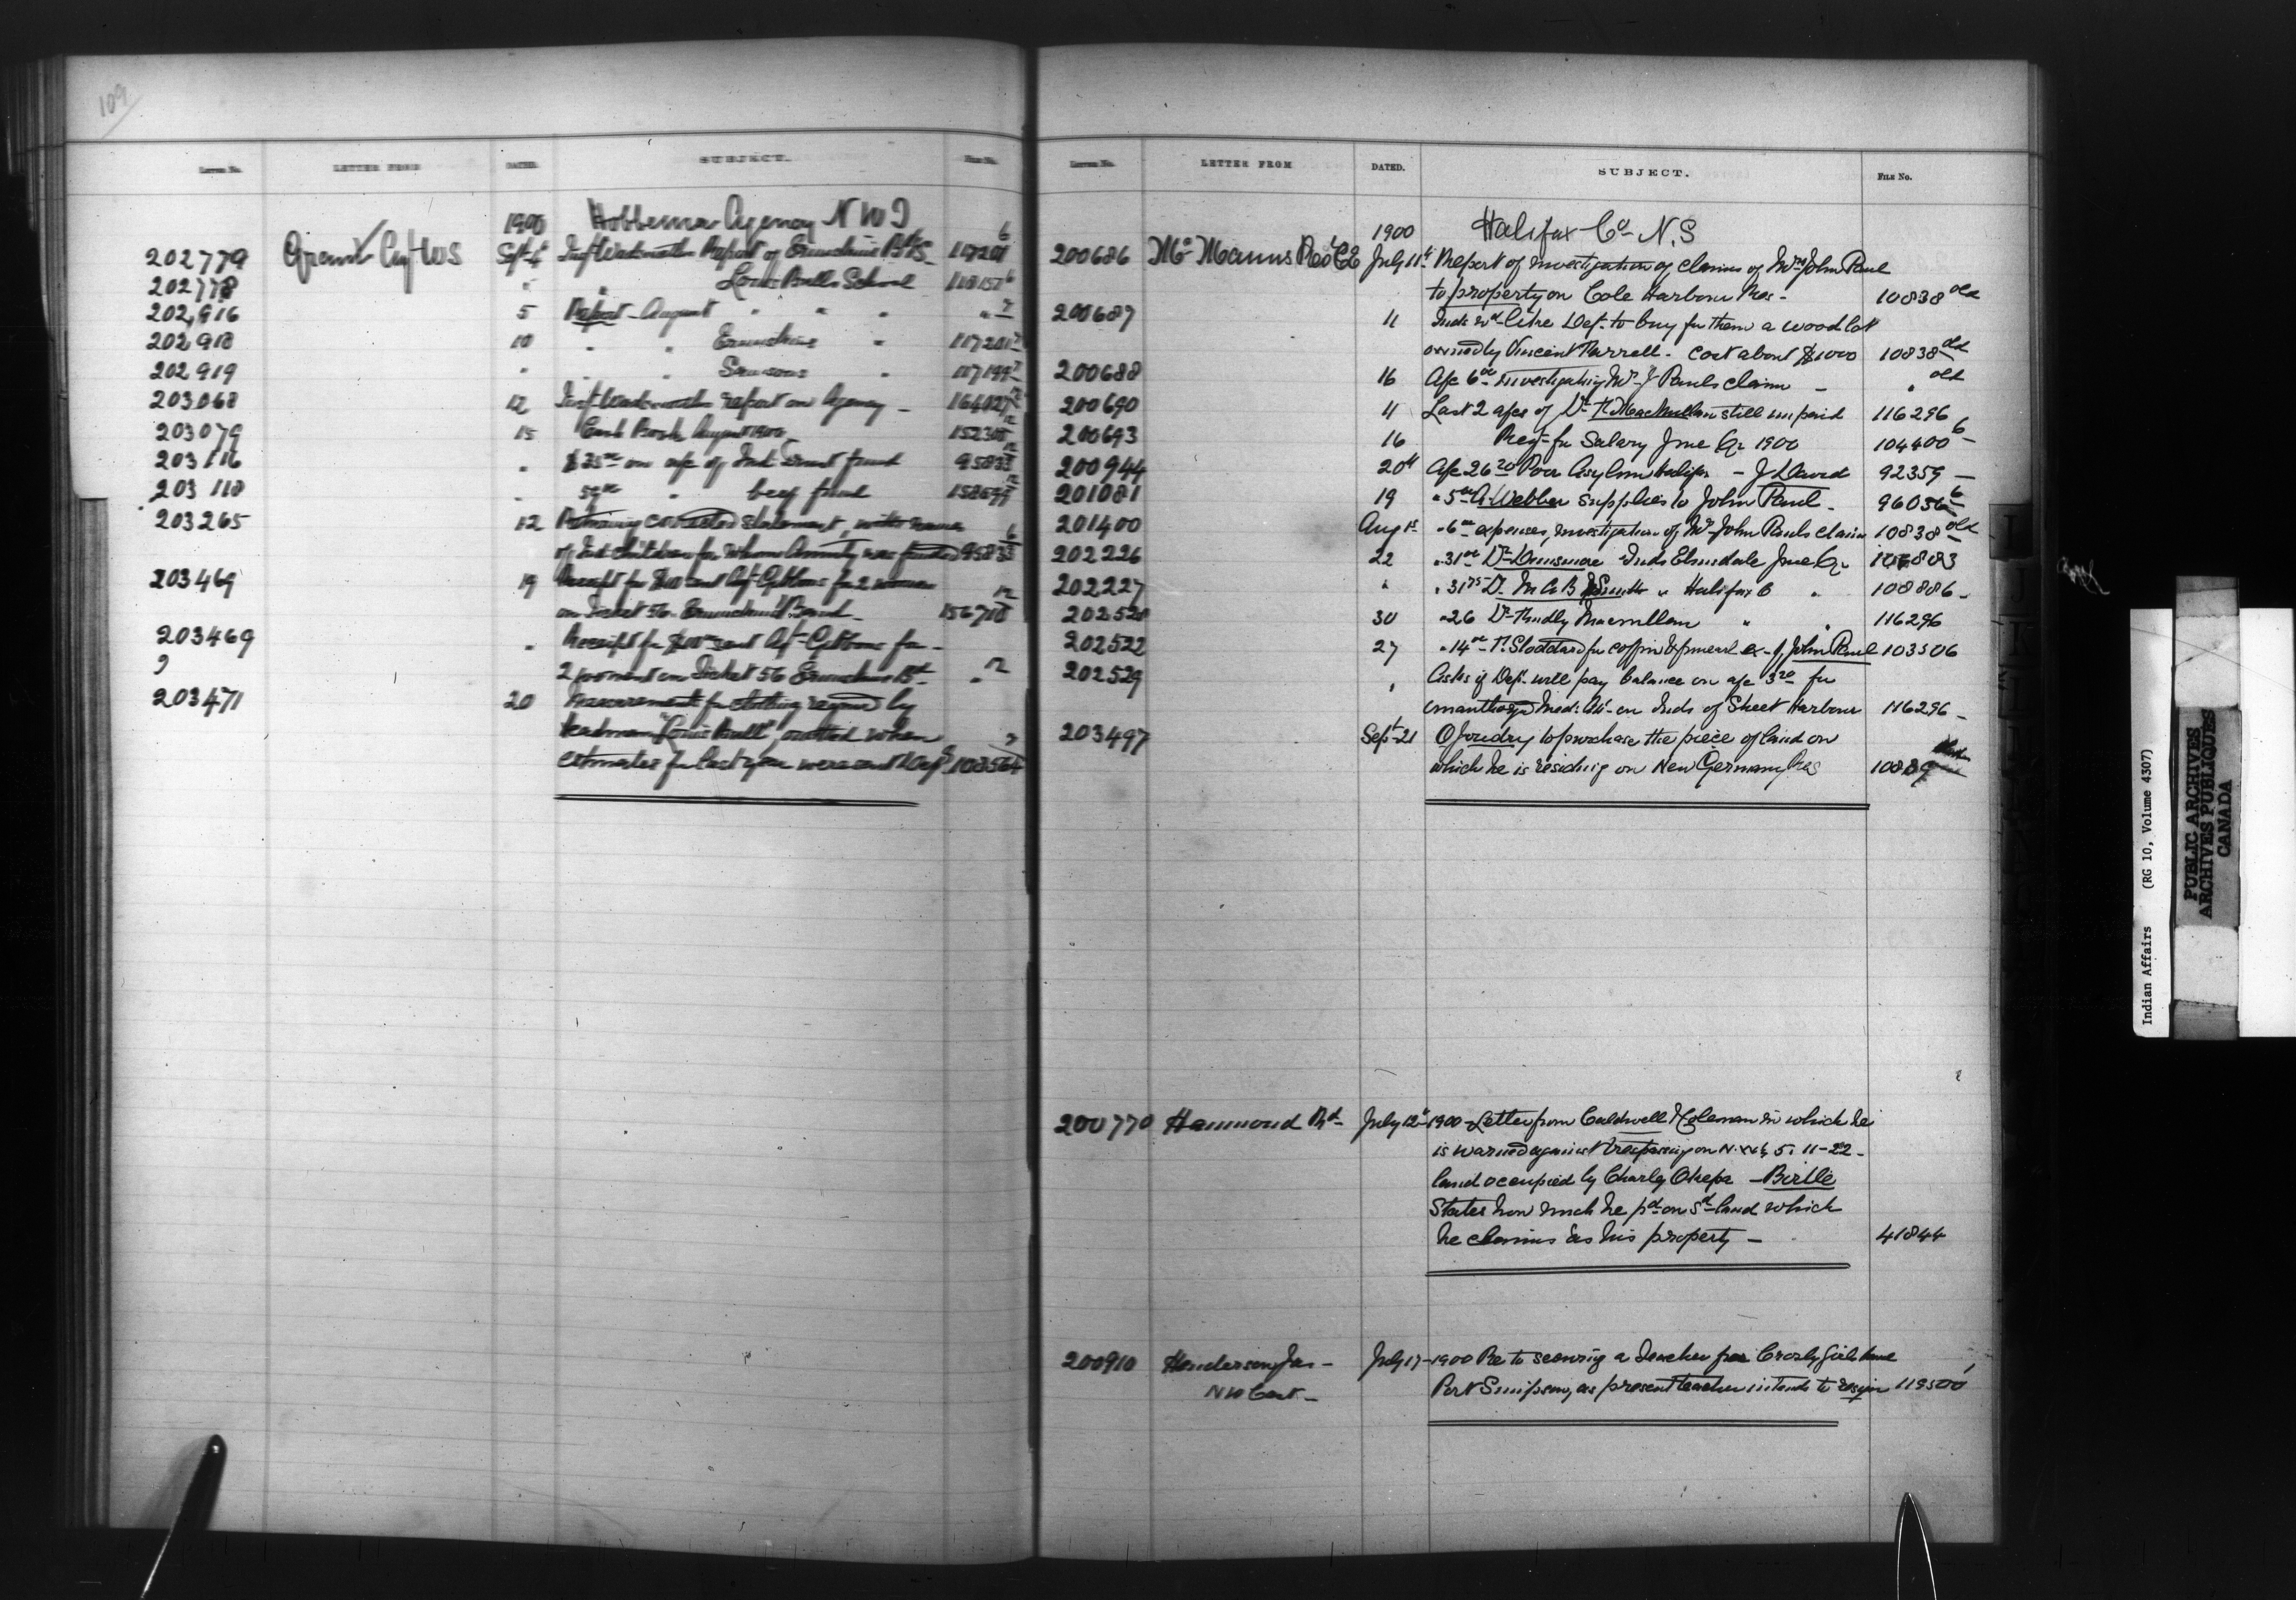 109
LETTER No. LETTER FROM DATED. SUBJECT. FILE No.
1900 Hobbema Agency N W T
202779 Grant Agt WS Sept 4 Insp Wadsworth Report of Ermineskins B S 117201 6
202778 " " Louis Bulls School 118157 6
202,916 5 Report August " " " " 7
202918 10 " " Ermineskins " 117201 7
202919 " " " Samsons " 117199 7
203068 12 Insp Wadsworth report on Agency 164027
203079 15 Cash Book August 1900 152305
203116 " $35 00 on a/c of Ind Trust fund 95833
203118 " 59 00 " beef fund 158699
203265 12 Returning corrected statement, with names
of Ind Children for whom Annuity was funded 95833
203469 19 Receipt for sent Agt Gibbons for 2 women
on Ticket 56 Ermineskins Band 156710
203469 " Receipt for sent Agt Gibbons for
2 on Ticket 56 Ermineskins Bd "
203471 20 Measurements for clothing required by
Headman "Louis Bull", omitted when
estimates for last year were sent Dept 108564
LETTER No. LETTER FROM DATED. SUBJECT. FILE No.
1900 Halifax Co N.S
200686 McManus Rev C E July 11th Report of investigation of claims of Mrs John Paul
to property on Cole Harbour Res - 10838 old
200687 11 Inds wd like Dept to buy for them a wood lot
owned by Vincent Farrell. cost about $1000 10838 old
200688 16 A/c 6 00 investigating Mrs J Pauls claim - " old
200690 11 Last 2 a/cs of Dr still unpaid 116296
200693 16 Reqt for Salary June Qr 1900 104400 6
200944 20th A/c 26 20 Poor Asylum Halifax - J David 92359 -
201081 19 " 5 00 A Webber supplies to John Paul - 96056 6
201400 Aug 1st " 6 00 expenses, investigation of Mrs John Pauls claim 10838 old
202226 22 " 31 00 Dr Dinsmore Inds Elmsdale June Qr 106883
202227 " " 31 75 D. M A B Smith " Halifax C " 108886 -
202528 30 " 26 Dr Macmillan " " 116296
202522 27 " 14 00 Stoddard for coffin & funeral ex of John Paul 103506
202529 " Asks if Dept will pay balance on a/c 3 20 for
Med. Att. on Inds of Sheet Harbour 116296 -
203497 Sept 21 O Joudry to purchase the piece of land on
which he is residing on New Germany Res 10889
200770 Hammond Rd July 12th 1900 - Letter from Caldwell & Coleman in which he
is warned against trespassing on N.W¼ 5. 11-22 -
land occupied by Charley - Birtle
States how much he pd on sd land which
he claims as his property - 41844
200910 Henderson Jas - July 17 - 1900 Re to securing a Teacher for Crosby Girls home
N W Coast - Port Simpson, as present teacher intends to resign 119500
Indian Affairs (RG 10, Volume 4307)
PUBLIC ARCHIVES
ARCHIVES PUBLIQUES
CANADA